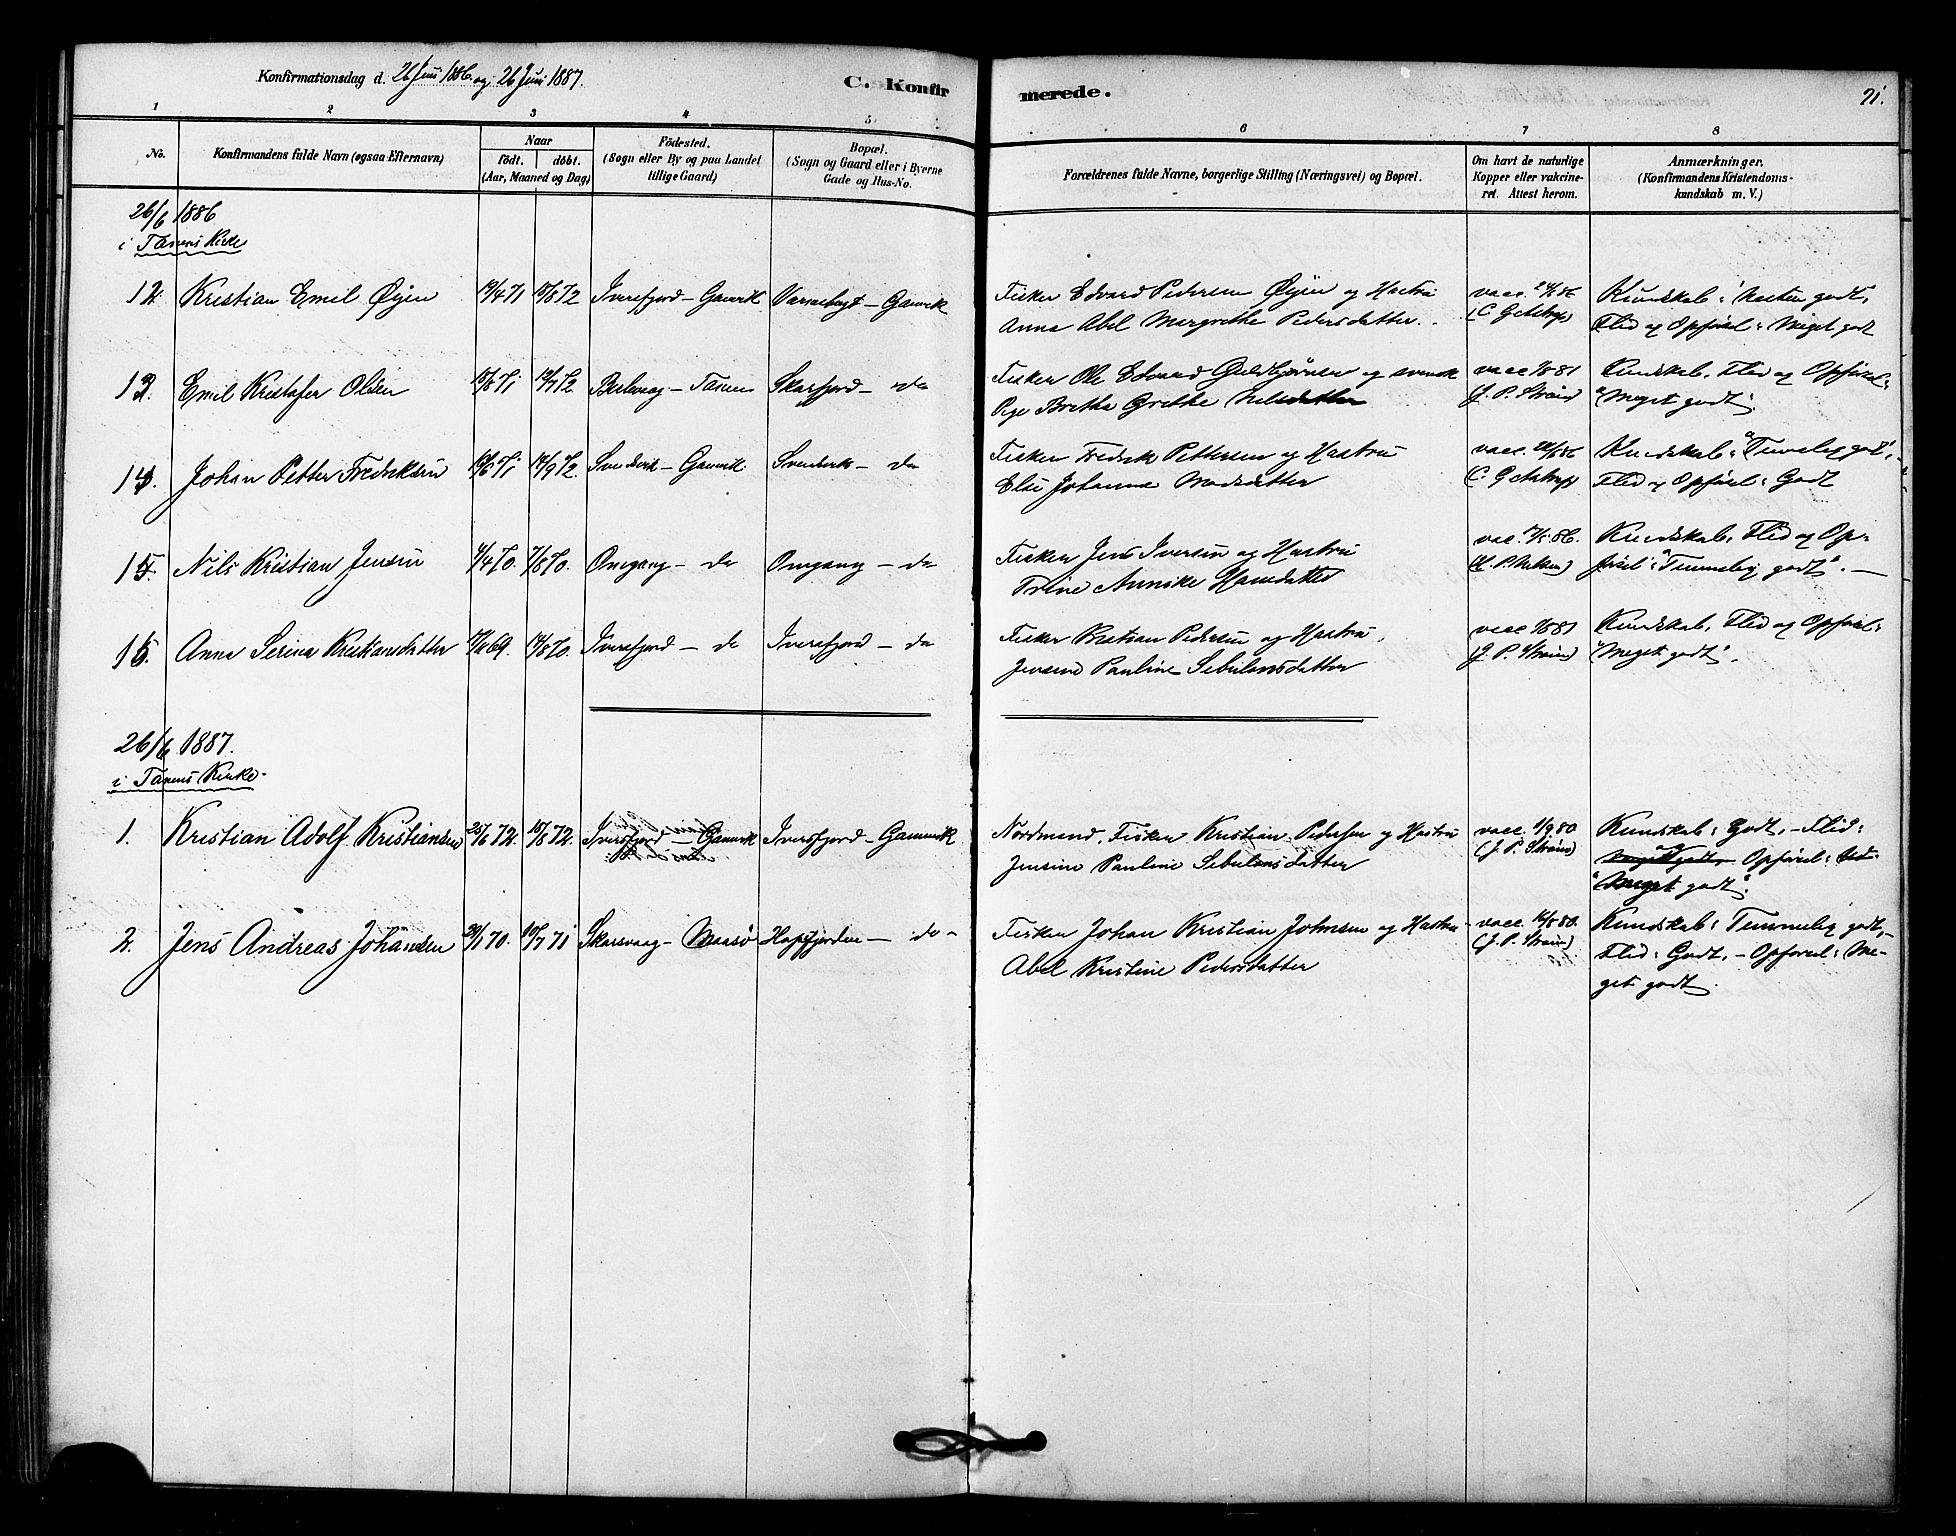 Konfirmationsdag d. 26 Juni 1886 og 26 Juni 1887.
C. Konfir
merede.
71.
1 2 3 4 5 6 7 8
No.
Konfirmandens fulde Navn (ogsaa Efternavn)
Naar
födt. döbt.
(Aar, Maaned og Dag)
Födested.
(Sogn eller By og paa Landet
tillige Gaard)
Bopæl.
(Sogn og Gaard eller i Byerne
Gade og Hus-No.
Forældrenes fulde Navne, borgerlige Stilling (Næringsvei) og Bopæl.
Om havt de naturlige
Kopper eller vakcine-
ret. Attest herom.
Anmærkninger.
(Konfirmandens Kristendoms-
kundskab m. V.)
26/6 1886
i Tanens Kirke
12. Kristian Emil Øijen Iversfjord - Gamvik - Gamvik
Fisker Edvard Pedersen Øijen og Hustru
Anna Abel Margrethe Pedersdatter.
vacc.
Kundskab: Næsten godt,
Flid og Opførsel: Meget godt
13. Emil Kristofer Olsen Berlevaag - Tanen Skarfjord - do
Fisker Ole Edvard og svensk
Pige Bretha Grethe Nilsdatter
vacc.
(J. P. Strøm)
Kundskab, Flid og Opførsel:
"Meget godt".
14. Johan Petter Fredriksen - Gamvik - do
Fisker Fredrik Pettersen og Hustru
Elen Johanna Madsdatter
vacc.
Kundskab: "Temmelig godt",
Flid og Opførsel: Godt
15. Nils Kristian Jensen Omgang - do Omgang - do
Fisker Jens Iversen og Hustru
Trine Annike Hansdatter
vac.
Kundskab, Flid og Op-
førsel: "Temmelig godt". -
16. Anna Serina Kristiansdatter Iversfjord - do Iversfjord - do
Fisker Kristian Pedersen og Hustru,
Jensine Pauline Sebulonsdatter
vacc.
(J. P. Strøm)
Kundskab, Flid og Opførsel:
"Meget godt".
26/6 1887.
i Tanens Kirke.
1. Kristian Adolf Kristiansen 25/6 72. 18/8 72. Iversfjord - Gamvik Iversfjord - Gamvik
Nordmand, Fisker Kristian Pedersen og Hustru
Jensine Pauline Sebulonsdatter
vacc. 1/9 80
(J. P. Strøm)
Kundskab: Godt, - Flid:
Opførsel:
"Meget godt".
2. Jens Andreas Johansen 10/7 71 Skarsvaag - Maasø Hopsfjorden - do -
Fisker Johan Kristian Johnsen og Hustru
Abel Kristine Pedersdatter
vacc.
(J. P. Strøm)
Kundskab: Temmelig godt, -
Flid: Godt, - Opførsel: Me-
get godt.